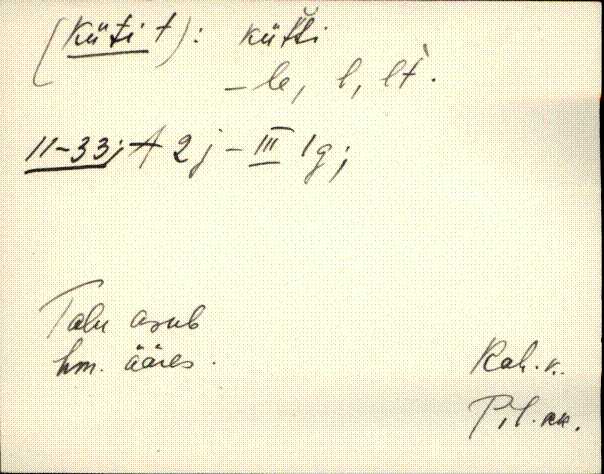 (Küti t): kütti
– le, l, lt.
11-33; A 2j – III lg;
Talu asub
hm. ääres.
Rah. v.
Pil. kk.